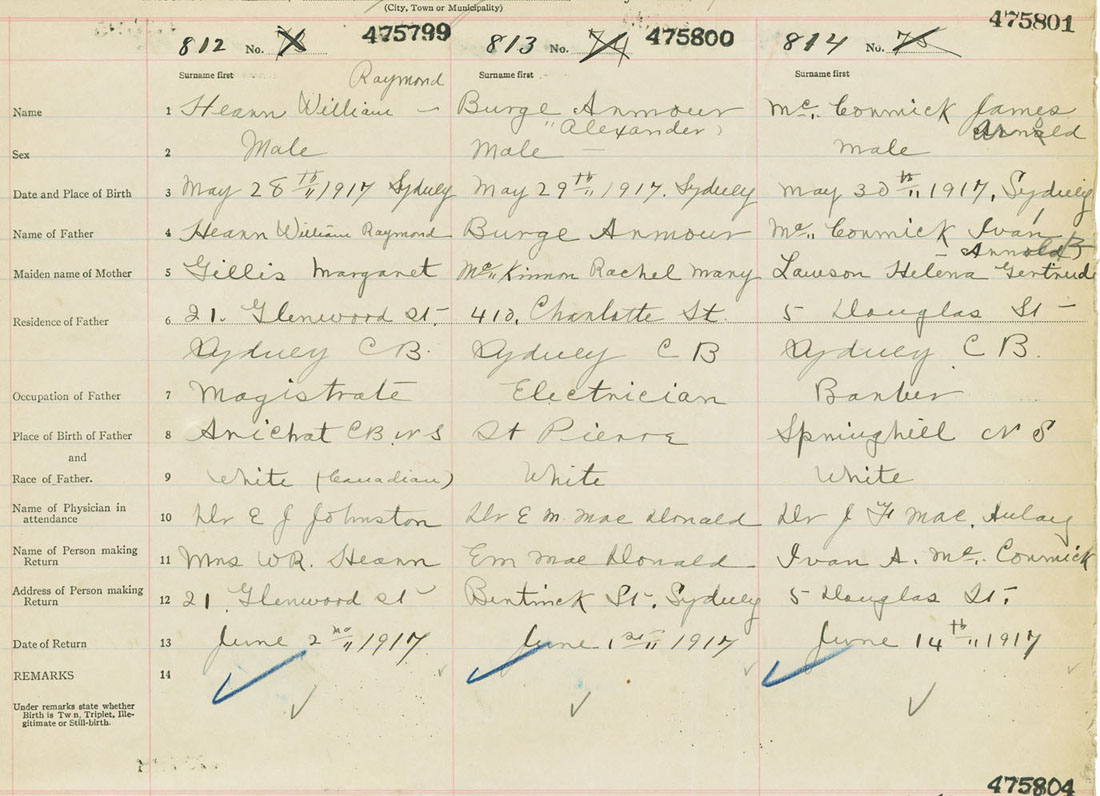 (City, Town or Municipality)
812 No. 475799 813 No. 74 475800 814 No. 75 475801
Surname first Surname first Surname first
Raymond
Name 1 Hearn William – Burge Armour Mc. Cormick James
"Alexander" Arnold
Sex 2 Male Male – male
Date and Place of Birth 3 May 28th 1917 Sydney May 29th 1917. Sydney May 30th 1917, Sydney
Name of Father 4 Hearn William Raymond Burge Armour Mc. Cormick Ivan
– Arnold B
Maiden name of Mother 5 Gillis Margaret Mc Kinnon Rachel Mary Lawson Helena Gertrude
Residence of Father 6 21. Glenwood St. 410, Charlotte St. 5 Douglas St –
Sydney C B. Sydney C B Sydney C B.
Occupation of Father 7 Magistrate Electrician Barber
Place of Birth of Father 8 Arichat CB N S St Pierre Springhill N S
and
Race of Father. 9 White (Canadian) White White
Name of Physician in attendance 10 Dr E J Johnston Dr E M. Mac Donald Dr J F Mac. Aulay
Name of Person making Return 11 Mrs W R. Hearn E M Mac Donald Ivan A. Mc. Cormick
Address of Person making Return 12 21 Glenwood St Bentinck St. Sydney 5 Douglas St.
Date of Return 13 June 2nd 1917 June 1st 1917 June 14th 1917
REMARKS 14
Under remarks state whether
Birth is Twn, Triplet, Ille-
gitimate or Still-birth.
475804